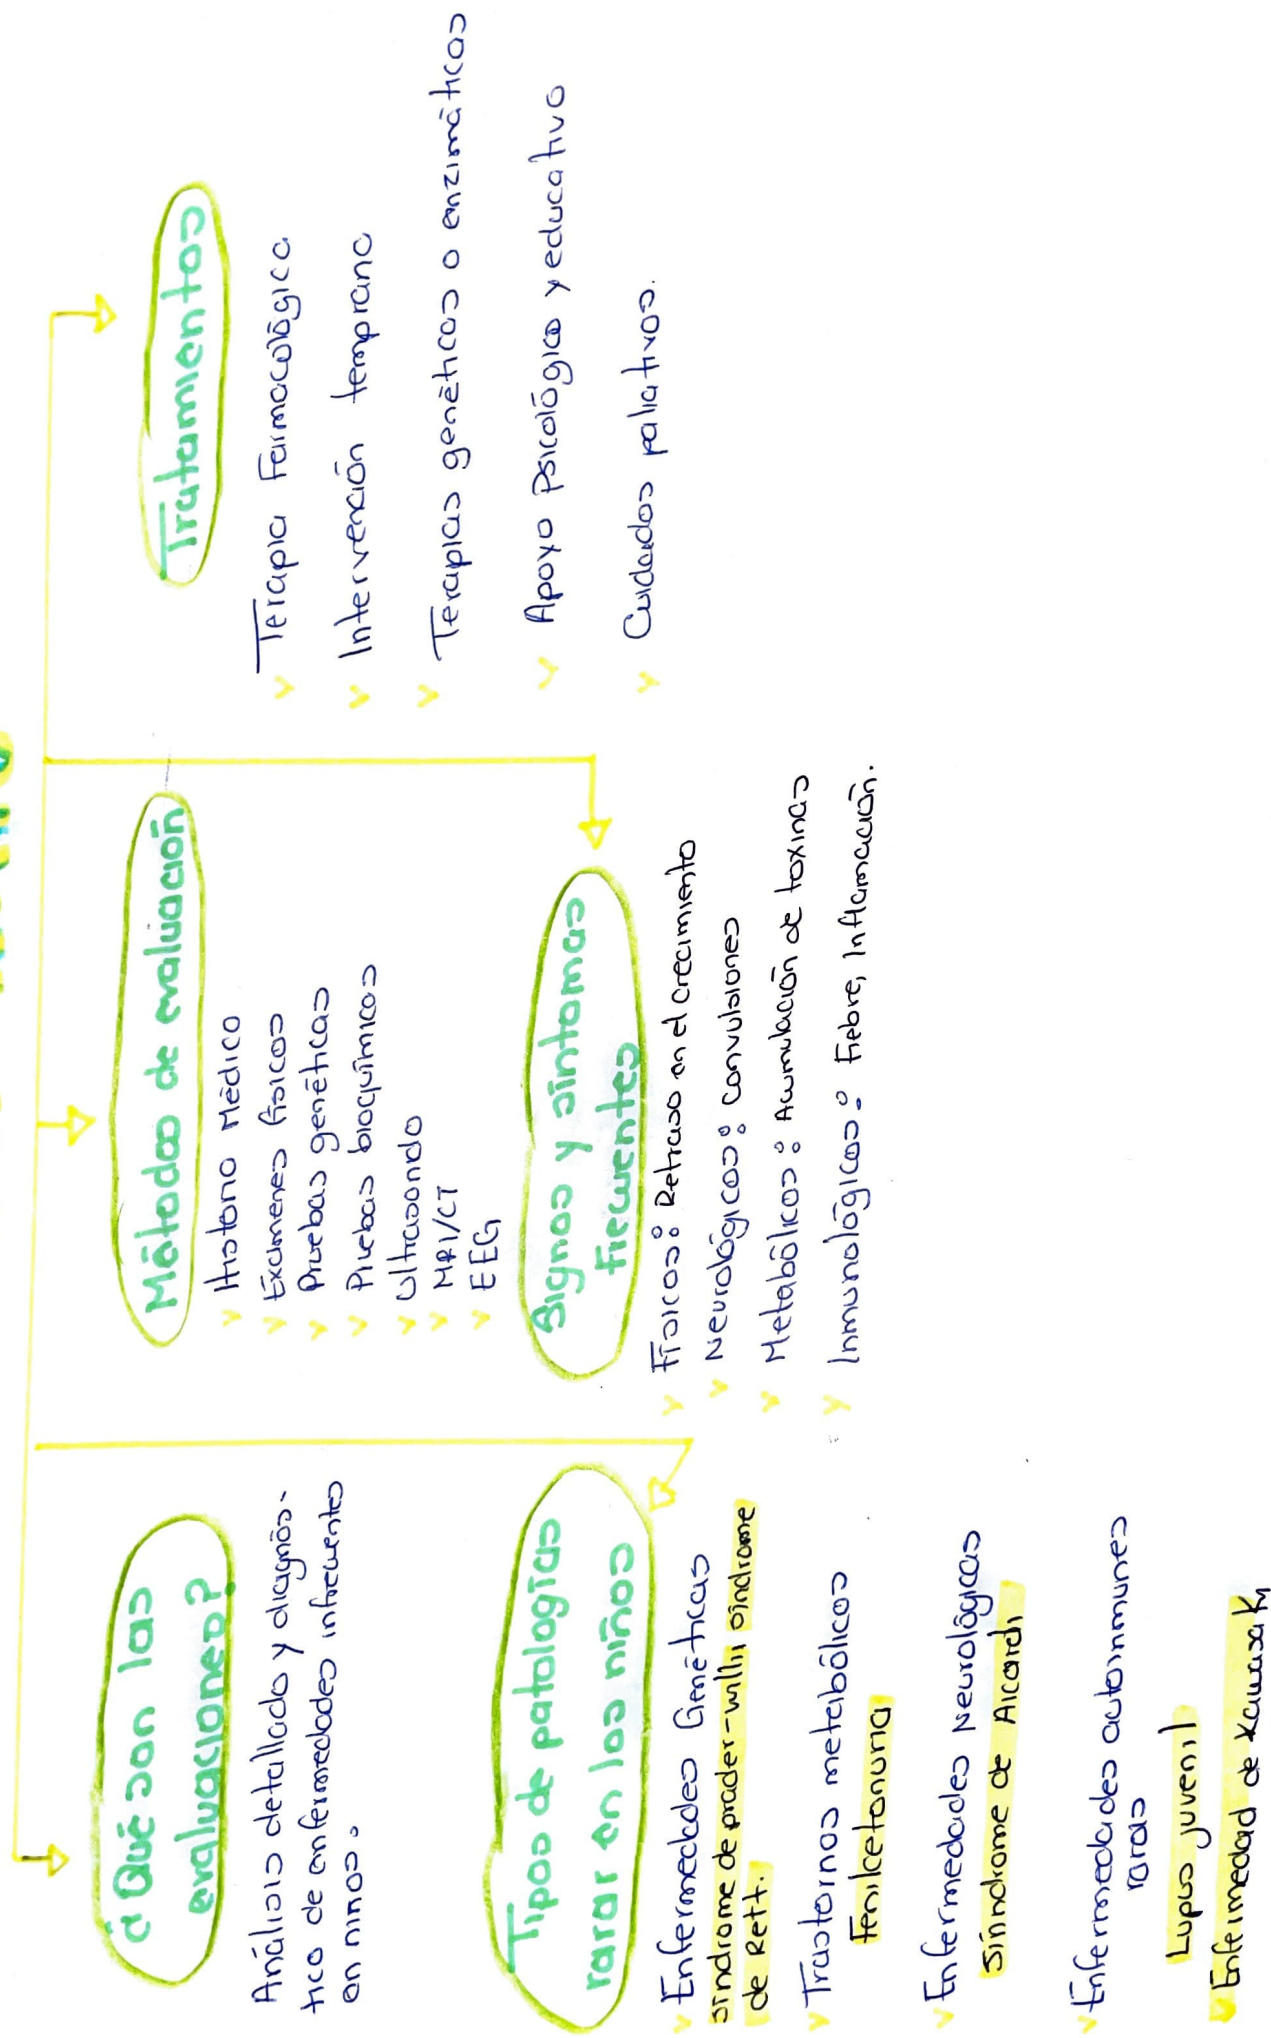 ¿Qué son las
evaluaciones?
Análisis detallado y diagnós-
tico de enfermedades infrecuentes
en niños.
Tipos de patologías
rarar en los niños
Enfermedades Genéticas
síndrome de prader-willi, síndrome
de Rett.
Trastornos metabólicos
Fenilcetonuria
Enfermedades Neurológicas
Sínndrome de Aicardi
Enfermedades autoinmunes
raras
Lupus juvenil
Enfermedad de Kawasaky
Métodos de evaluación
Historio Médico
Exámenes físicos
Pruebas genéticas
Pruebas bioquímicas
Ultrasonido
MRI/CT
EEG
Signos y síntomas
Frecuentes
Físicos: Retraso en el crecimiento
Neurológicos: Convulsiones
Metabólicos: Acumulación de toxinas
Inmunológicos: Fiebre, Inflamación.
Tratamientos
Terapia Farmacológica
Intervención temprana
Terapias genéticas o enzimáticas
Apoyo Psicológico y educativo
Cuidados paliativos.